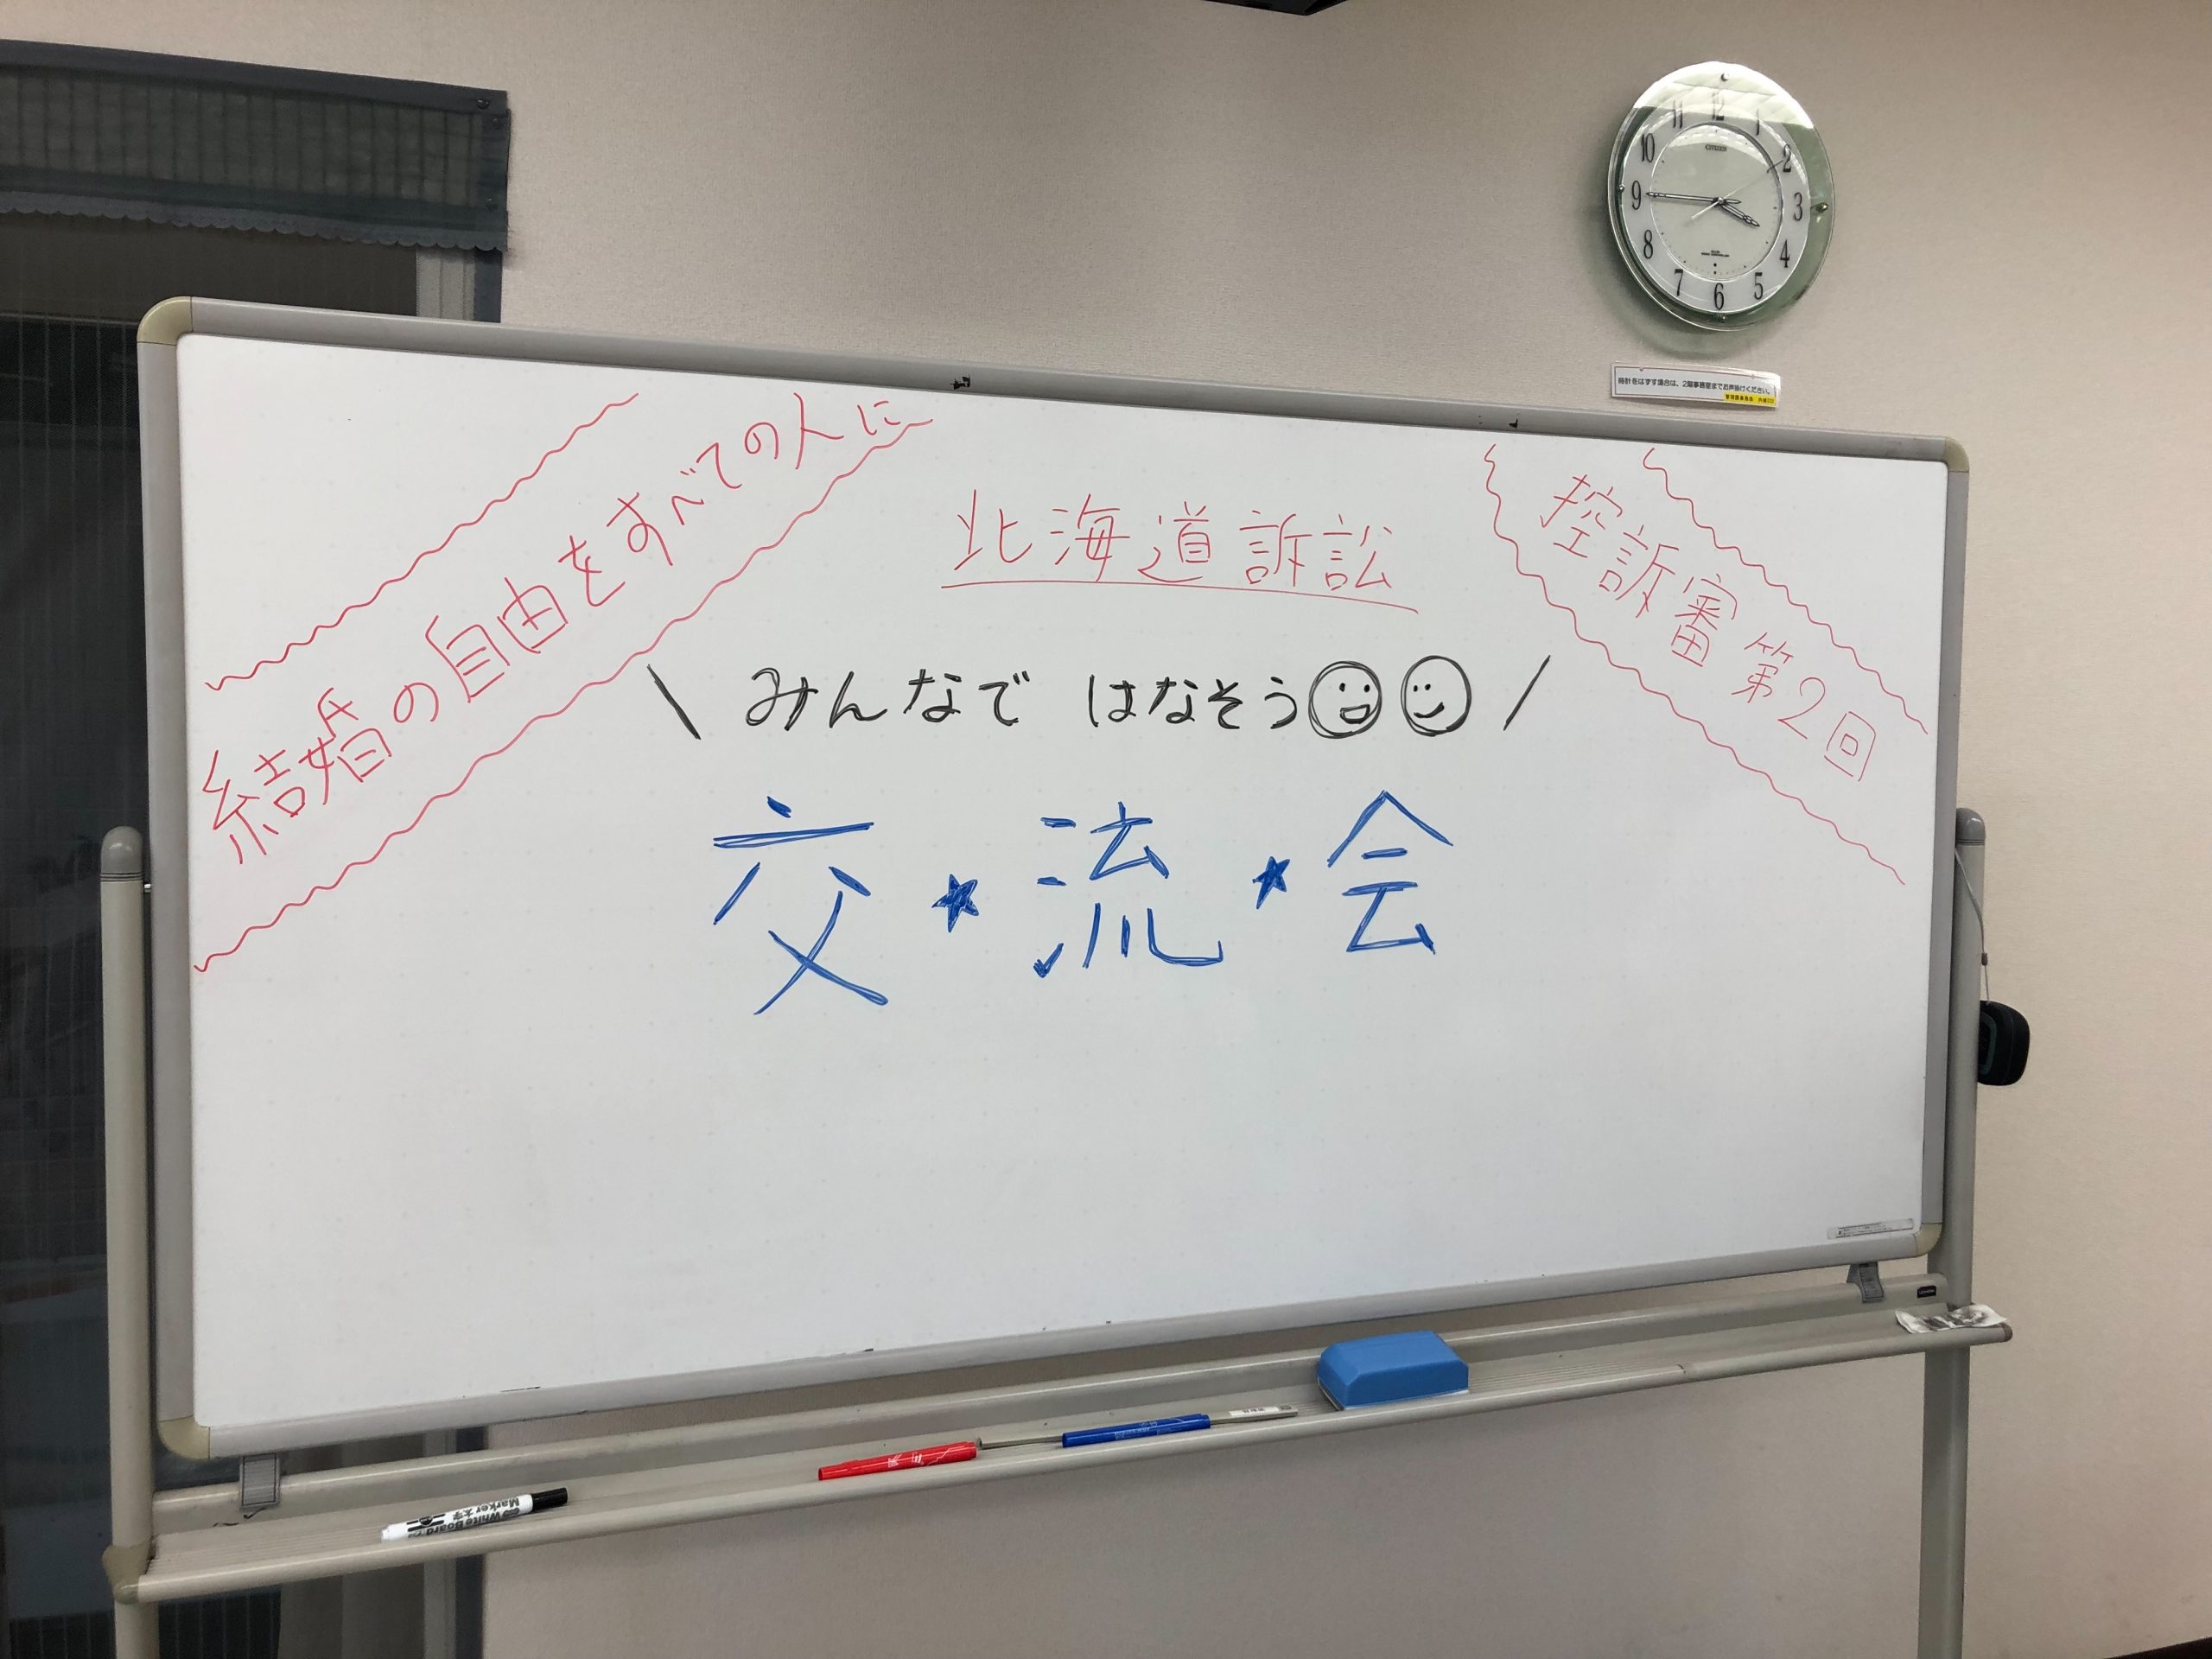 結婚の自由をすべての人に
北海道訴訟
控訴審第2回
\ みんなで はなそう /
交★流★会
CITIZEN
12
1
2
3
4
5
6
7
8
9
10
11
時計をはずす場合は、2階事務室までお声掛けください。
WhiteBoard
Marker 太字